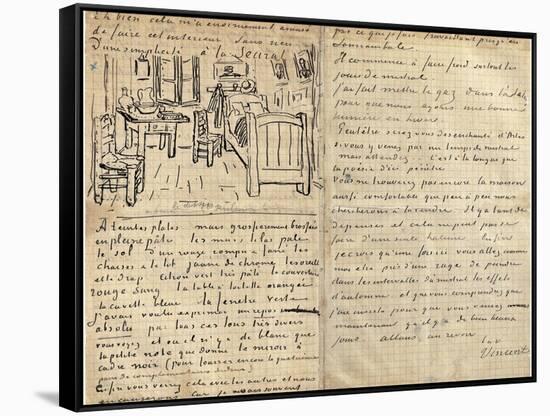 Eh bien cela m'a enormement amusé
de faire cet interieur sans rien
D'une simplicité à la Seurat
A teintes plates mais grossierement brossées
en pleine pâte les murs lilas pale
le sol d'un rouge rompu & fané les
chaises & le lit jaune de chrome les oreillers
et le drap citron vert très pâle la couverture
rouge sang la table à toilette orangée
la cuvette bleue la fenetre verte
j'avais voulu exprimer un repos
absolu par tous ces tons très divers
vous voyez et où il n'y a de blanc que
la petite note que donne le miroir à
cadre noir (pour fourrer encore la quatrième
paire de complementaires dedans)
Enfin vous verrez cela avec les autres et nous
en causerons car je ne sais souvent
pas ce que je fais travaillant presqu'en
Somnambule.
Il commence à faire froid surtout les
jours de mistral.
j'ai fait mettre le gaz dans
pour que nous ayons une bonne
lumière en hiver.
Peutêtre serez vous desenchanté d'Arles
si vous y venez par un temps de mistral
mais attendez.. C'est à la longue que
la poësie d'ici pénètre
Vous ne trouverez pas encore la maison
aussi confortable que peu à peu nous
chercherons à la rendre. Il y a tant de
depenses et cela ne peut pas se
faire d'une seule haleine. Enfin
je crois qu'une fois ici vous allez comme
moi être pris d'une rage de peindre
dans les intervalles du mistral les effets
d'automne et que vous comprendrez que
j'aie insisté pour que vous veniez
maintenant qu'il y a de bien beaux
jours. allons au revoir
t. à v.
Vincent